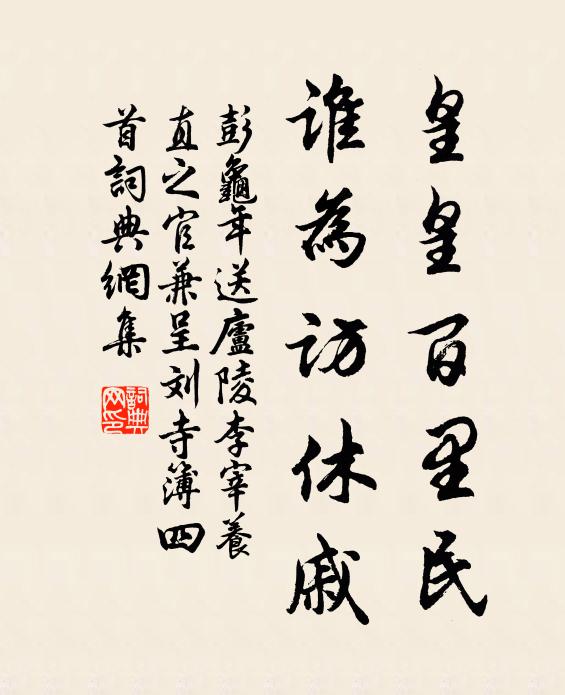 皇皇百里民
誰為訪休戚
彭龜年送廬陵李宰養
直之官兼呈刘寺簿四
首詞典網集
詞典网印